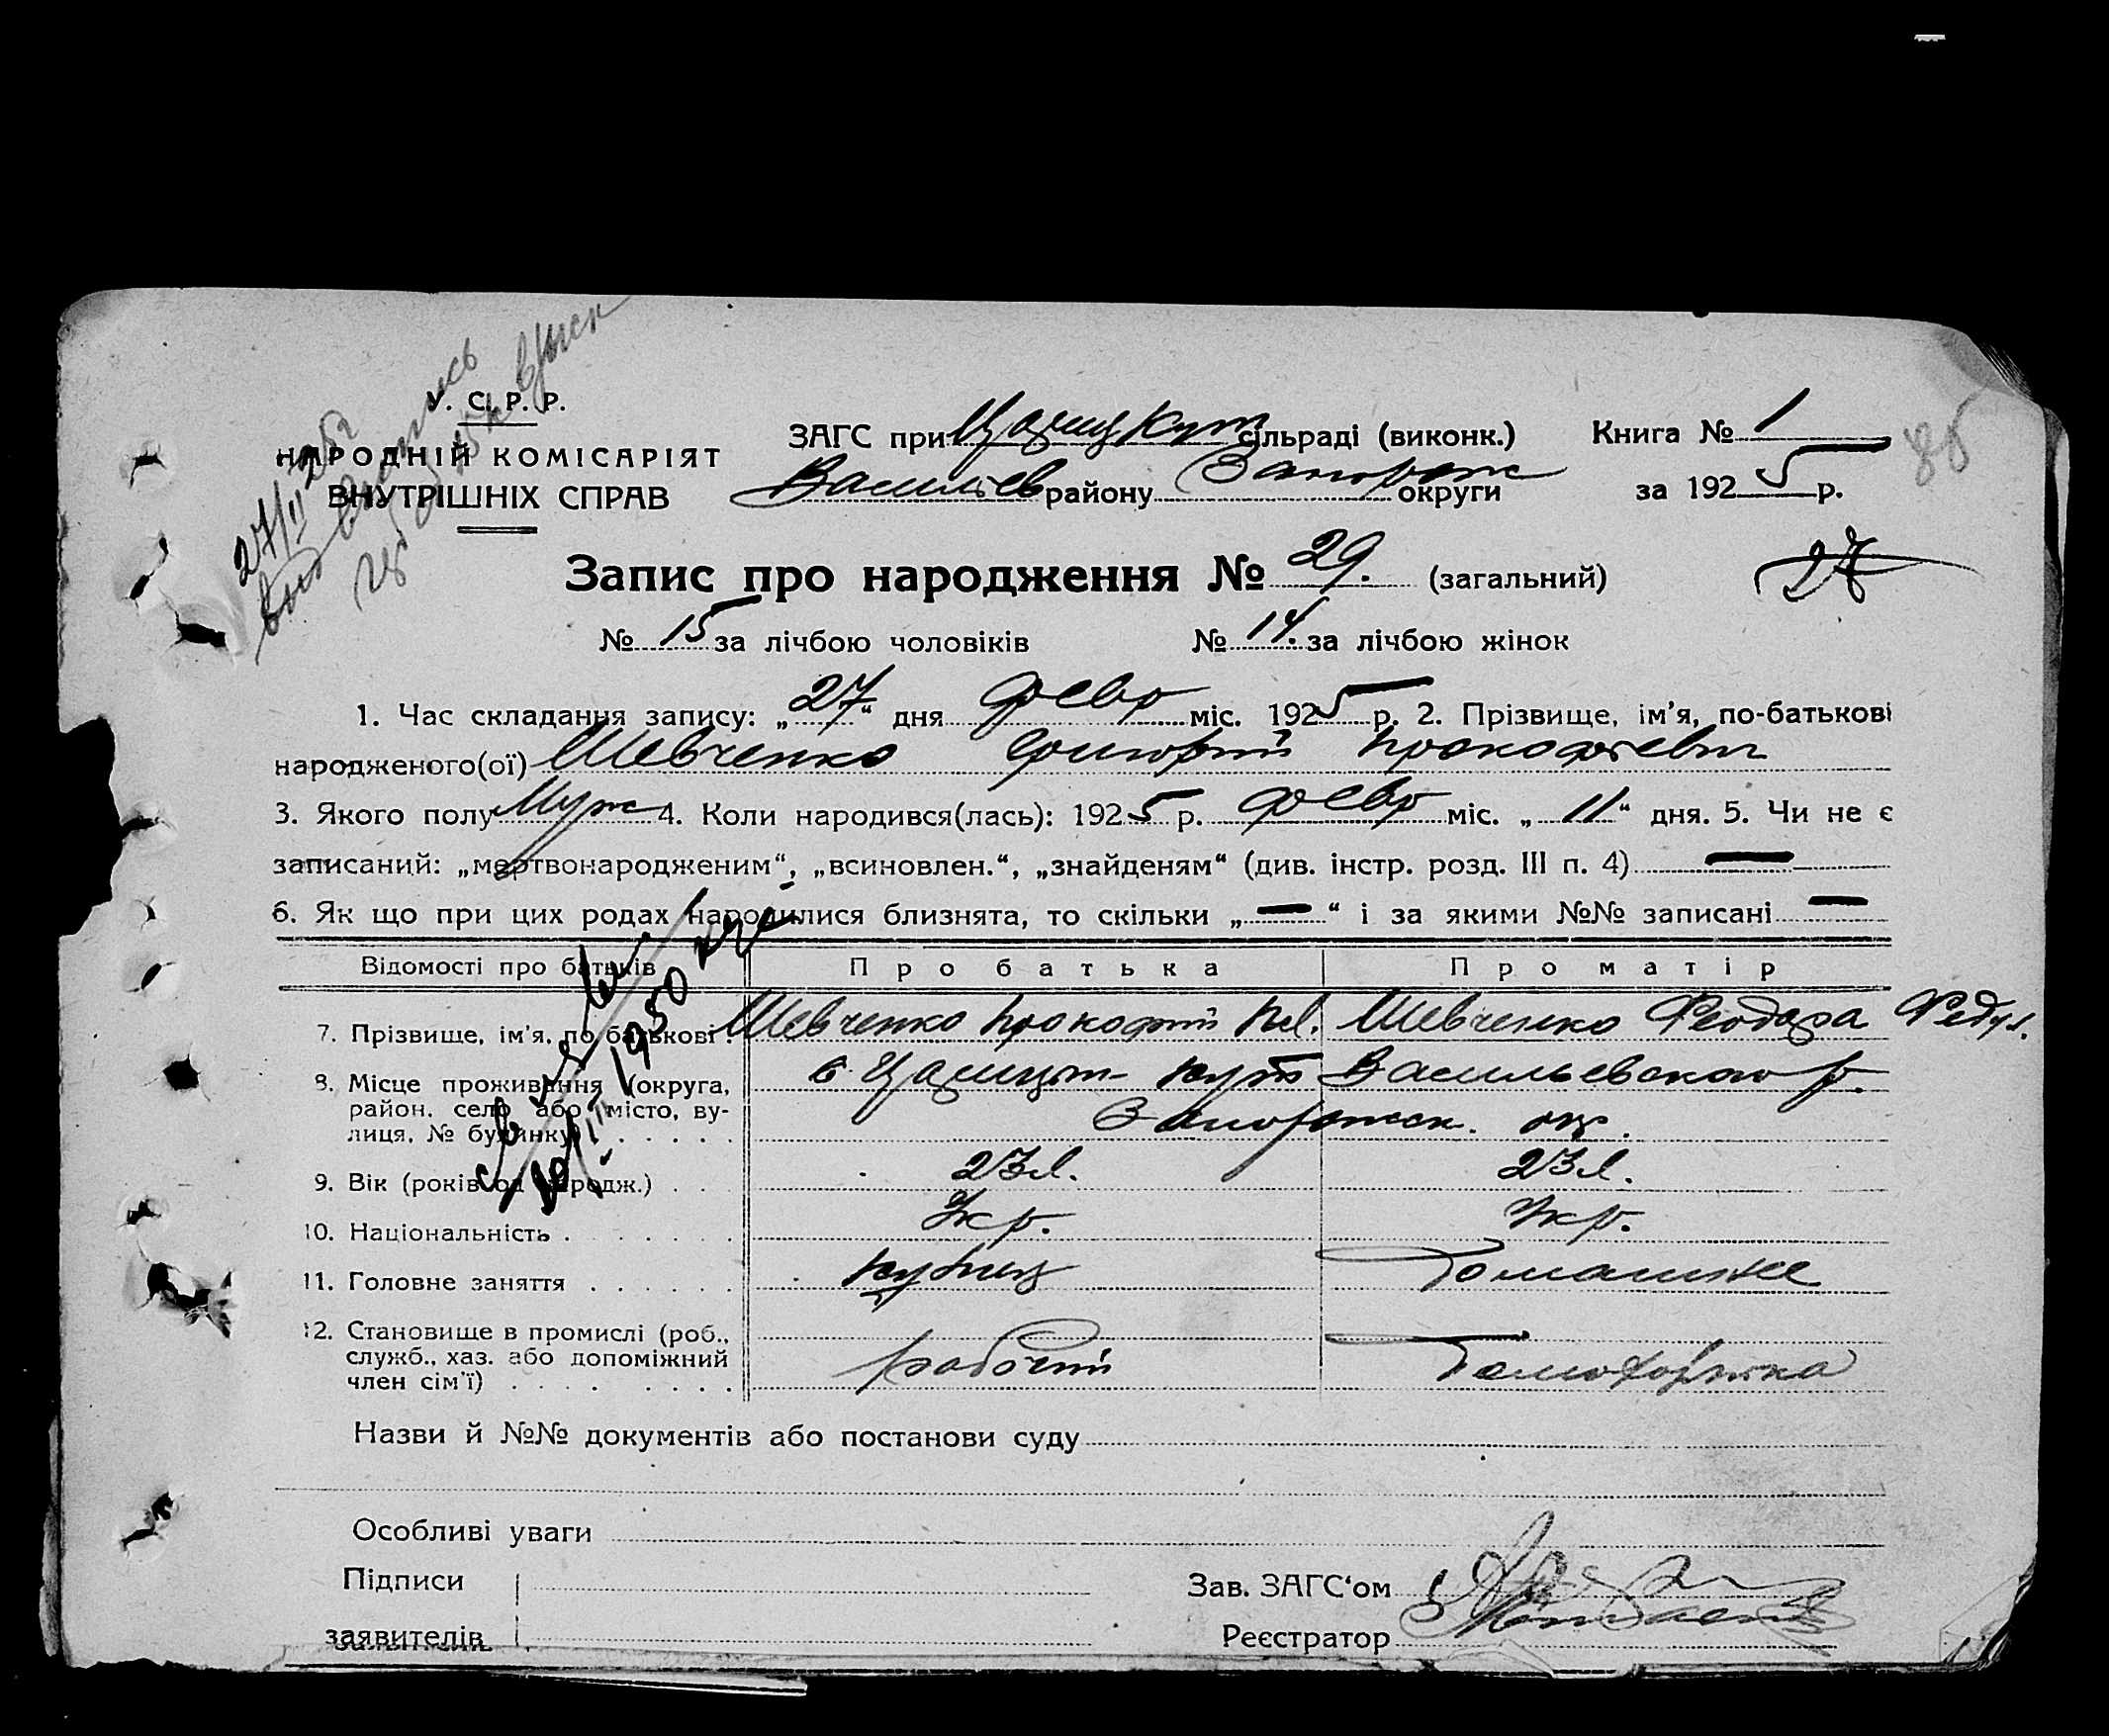 У. С. Р. Р.
НАРОДНІЙ КОМІСАРІЯТ
ВНУТРІШНІХ СПРАВ
27/II 25 г
ЗАГС при Царицкут сільраді (виконк.) Книга № 1
Васильев району Запорож округи за 1925 р.
85
Запис про народження № 29. (загальний)
27
№ 15 за лічбою чоловіків № 14. за лічбою жінок
1. Час складання запису: „27“ дня февр міс. 1925 р. 2. Прізвище, ім'я, по-батькові
народженого(ої) Шевченко Григорий Прокофьевич
3. Якого полу Муж 4. Коли народився(лась): 1925 р. февр міс. „11“ дня. 5. Чи не є
записаний: „мертвонародженим“, „всиновлен.“, „знайденям“ (див. інстр. розд. III п. 4) —
6. Як що при цих родах народилися близнята, то скільки „—“ і за якими №№ записані —
Відомості про батьків Про батька Про матір
7. Прізвище, ім'я, по батькові. Шевченко Прокофий Шевченко Феодора Федул.
8. Місце проживання (округа, с Царицын-Кут Васильевского р.
район, село або місто, ву-
лиця, № будинку) Запорожск. окр.
1950
9. Вік (років од народж.) 23 л. 23 л.
10. Національність Укр. Укр.
11. Головне заняття Домашнее
12. Становище в промислі (роб.,
служб., хаз. або допоміжний рабочий Домохозяйка
член сім'ї)
Назви й №№ документів або постанови суду
Особливі уваги
Підписи Зав. ЗАГС'ом
заявителів Реєстратор